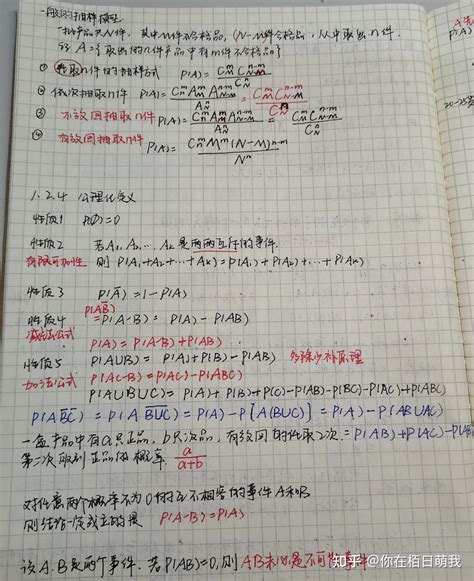 一般的抽样模型
一批产品共N件,其中M件不合格品,(N-M)件合格品,从中取出n件.
设A={取出的n件产品中有m件不合格品}
① 抽取n件的抽样方式 P(A)= C_M^m C_{N-M}^{n-m} / C_N^n
② 依次抽取n件 P(A)= C_n^m A_M^m A_{N-M}^{n-m} / A_N^n = C_M^m C_{N-M}^{n-m} / C_N^n
③ 不放回抽取n件 P(A)= C_n^m A_M^m A_{N-M}^{n-m} / A_N^n = C_M^m C_{N-M}^{n-m} / C_N^n
④ 有放回抽取n件 P(A)= C_n^m M^m (N-M)^{n-m} / N^n
1.2.4 公理化定义
性质1 P(∅)=0
性质2 若A₁,A₂,…A_k是两两互斥的事件
有限可加性 则P(A₁+A₂+…+A_k)=P(A₁)+P(A₂)+…+P(A_k)
性质3 P(Ā)=1-P(A)
P(AB̄)
性质4 =P(A-B)=P(A)-P(AB)
减法公式 P(A)=P(A-B)+P(AB)
性质5 P(A∪B)=P(A)+P(B)-P(AB) 多除少补原理
加法公式 P(AC-B)=P(AC)-P(ABC)
P(A∪B∪C)=P(A)+P(B)+P(C)-P(AB)-P(BC)-P(AC)+P(ABC)
P(AB̄C̄)=P(A \overline{B∪C})=P(A)-P[A(B∪C)]=P(A)-P(AB∪AC)
一盒产品中有a只正品,b只次品,有放回的任取2次, =P(AB)+P(AC)-P(AB
第二次取到正品的概率 a/(a+b)
对任意两个概率不为0的互不相容的事件A和B
则结论一成立的是 P(A-B)=P(A)
设A.B是两个事件.若P(AB)=0,则AB未必是不可能事件
P(A)
20-25
知乎 @你在栢日萌我